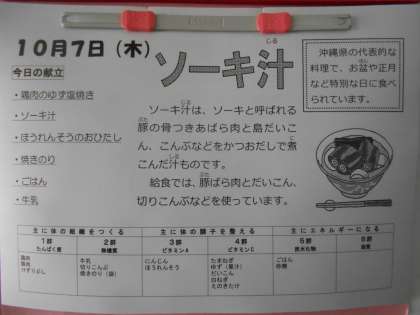 10月7日(木)
ソーキ汁
じる
沖縄県の代表的な
料理で、お盆や正月
など特別な日に食べ
られています。
今日の献立
・鶏肉のゆず塩焼き
・ソーキ汁
・ほうれんそうのおひたし
・焼きのり
・ごはん
・牛乳
ソーキ汁は、ソーキと呼ばれる
豚の骨つきあばら肉と島だいこ
ん、こんぶなどをかつおだしで煮
こんだ汁ものです。
給食では、豚ばら肉とだいこん、
切りこんぶなどを使っています。
主に体の組織をつくる
主に体の調子を整える
主にエネルギーになる
1群
たんぱく質
2群
無機質
3群
ビタミンA
4群
ビタミンC
5群
炭水化物
6群
脂質
鶏肉
豚肉
けずりぶし
牛乳
切りこんぶ
焼きのり(袋)
にんじん
ほうれんそう
たまねぎ
ゆず(果汁)
だいこん
白ねぎ
えのきたけ
ごはん
砂糖